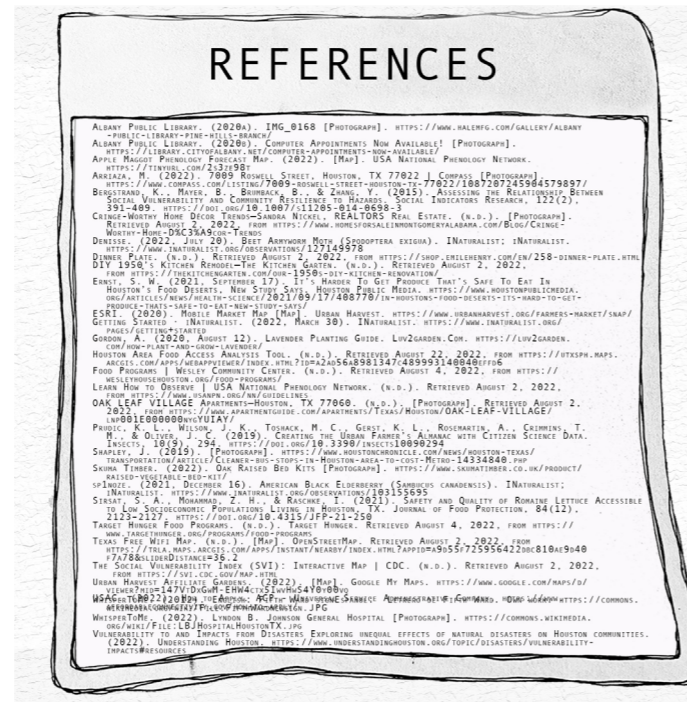 REFERENCES
Albany Public Library. (2020a). IMG_0168 [Photograph]. https://www.halemfg.com/gallery/albany
-public-library-pine-hills-branch/
Albany Public Library. (2020b). Computer Appointments Now Available! [Photograph].
https://library.cityofalbany.net/computer-appointments-now-available/
Apple Maggot Phenology Forecast Map. (2022). [Map]. USA National Phenology Network.
https://tinyurl.com/2s3ze98t
Arriaza, M. (2022). 7009 Roswell Street, Houston, TX 77022 | Compass [Photograph].
https://www.compass.com/listing/7009-roswell-street-houston-tx-77022/1087207245904579897/
Bergstrand, K., Mayer, B., Brumback, B., & Zhang, Y. (2015). Assessing the Relationship Between
Social Vulnerability and Community Resilience to Hazards. Social Indicators Research, 122(2),
391–409. https://doi.org/10.1007/s11205-014-0698-3
Cringe-Worthy Home Décor Trends—Sandra Nickel, REALTORS Real Estate. (n.d.). [Photograph].
Retrieved August 2, 2022, from https://www.homesforsaleinmontgomeryalabama.com/Blog/Cringe-
Worthy-Home-D%C3%A9cor-Trends
Denisse. (2022, July 20). Beet Armyworm Moth (Spodoptera exigua). INaturalist; iNaturalist.
https://www.inaturalist.org/observations/127149978
Dinner Plate. (n.d.). Retrieved August 2, 2022, from https://shop.emilehenry.com/en/258-dinner-plate.html
DIY 1950's Kitchen Remodel—The Kitchen Garten. (n.d.). Retrieved August 2, 2022,
from https://thekitchengarten.com/our-1950s-diy-kitchen-renovation/
Ernst, S. W. (2021, September 17). It's Harder To Get Produce That's Safe To Eat In
Houston's Food Deserts, New Study Says. Houston Public Media. https://www.houstonpublicmedia.
org/articles/news/health-science/2021/09/17/408770/in-houstons-food-deserts-its-hard-to-get-
produce-thats-safe-to-eat-new-study-says/
ESRI. (2020). Mobile Market Map [Map]. Urban Harvest. https://www.urbanharvest.org/farmers-market/snap/
Getting Started · iNaturalist. (2022, March 30). INaturalist. https://www.inaturalist.org/
pages/getting+started
Gordon, A. (2020, August 12). Lavender Planting Guide. Luv2garden.Com. https://luv2garden.
com/how-plant-and-grow-lavender/
Houston Area Food Access Analysis Tool. (n.d.). Retrieved August 22, 2022, from https://utxsph.maps.
arcgis.com/apps/webappviewer/index.html?id=a2ad56a8981347c489993140040effd6
Food Programs | Wesley Community Center. (n.d.). Retrieved August 4, 2022, from https://
wesleyhousehouston.org/food-programs/
Learn How to Observe | USA National Phenology Network. (n.d.). Retrieved August 2, 2022,
from https://www.usanpn.org/nn/guidelines
OAK LEAF VILLAGE Apartments—Houston, TX 77060. (n.d.). [Photograph]. Retrieved August 2.
2022, from https://www.apartmentguide.com/apartments/Texas/Houston/OAK-LEAF-VILLAGE/
lnp001E000000nygYUIAY/
Prudic, K. L., Wilson, J. K., Toshack, M. C., Gerst, K. L., Rosemartin, A., Crimmins, T.
M., & Oliver, J. C. (2019). Creating the Urban Farmer's Almanac with Citizen Science Data.
Insects, 10(9), 294. https://doi.org/10.3390/insects10090294
Shapley, J. (2019). [Photograph]. https://www.houstonchronicle.com/news/houston-texas/
transportation/article/Cleaner-bus-stops-in-Houston-area-to-cost-Metro-14334840.php
Skuma Timber. (2022). Oak Raised Bed Kits [Photograph]. https://www.skumatimber.co.uk/product/
raised-vegetable-bed-kit/
sp1noze. (2021, December 16). American Black Elderberry (Sambucus canadensis). INaturalist;
iNaturalist. https://www.inaturalist.org/observations/103155695
Sirsat, S. A., Mohammad, Z. H., & Raschke, I. (2021). Safety and Quality of Romaine Lettuce Accessible
to Low Socioeconomic Populations Living in Houston, TX. Journal of Food Protection, 84(12),
2123–2127. https://doi.org/10.4315/JFP-21-250
Target Hunger Food Programs. (n.d.). Target Hunger. Retrieved August 4, 2022, from https://
www.targethunger.org/programs/food-programs
Texas Free Wifi Map. (n.d.). [Map]. OpenStreetMap. Retrieved August 2, 2022, from
https://trla.maps.arcgis.com/apps/instant/nearby/index.html?appid=a9d55f725956422dbc810ae9d40
f7a78&sliderDistance=36.2
The Social Vulnerability Index (SVI): Interactive Map | CDC. (n.d.). Retrieved August 2, 2022,
from https://svi.cdc.gov/map.html
Urban Harvest Affiliate Gardens. (2022). [Map]. Google My Maps. https://www.google.com/maps/d/
WhisperToMe. (2022). Lyndon B. Johnson General Hospital [Photograph]. https://commons.wikimedia.
org/wiki/File:LBJHospitalHoustonTX.jpg
Vulnerability to and Impacts from Disasters Exploring unequal effects of natural disasters on Houston communities.
(2022). Understanding Houston. https://www.understandinghouston.org/topic/disasters/vulnerability-
impacts#resources